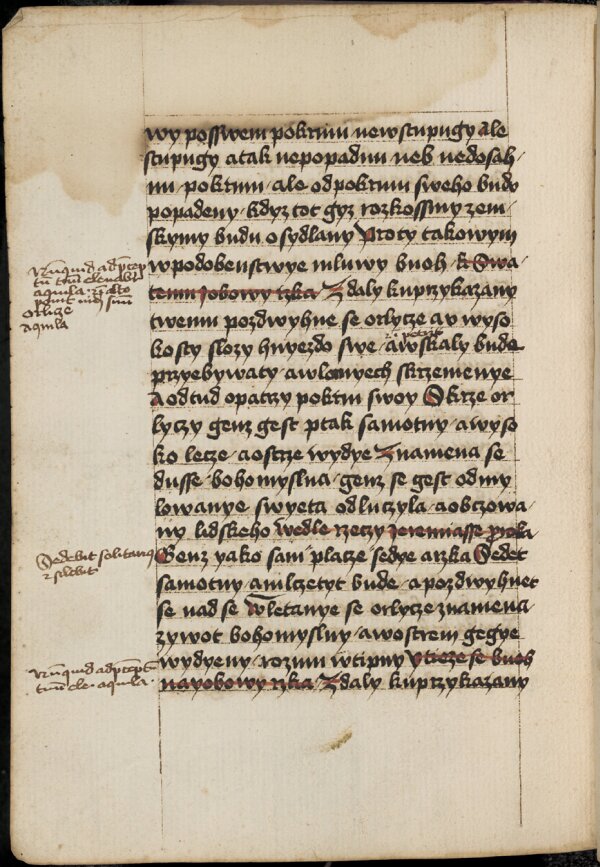 wy posswem pokrmu new stupugy ale
stupugy atak nepopadnu neb nedosah
nu pokrmu ale odpokrmu sweho budu
popadeny kdyz tot gyz rozkossmy zem
skymy budu osydlany Proty takowym
wpodobenstwye mluwy buoh k Swa
temu Jobowy rzka Zdaly kuprzykazany
twemu pozdwyhne se orlycze ay wyso
kosty slozy hnyezdo swe awskaly bude
przyebywaty awlomyech skrzemenye
Aodtud opatrzy pokrm swoy Skrze or
lyczy genz gest ptak samotny awyso
ko lecze aostrze wydye Znamena se
dusse bohomyslna genz se gest odmy
lowanye swyeta odluczyla aobczowa
ny lidskeho wedle rzeczy Jeremiasse prora
Genz yako sam placze sedye arzka Sedet
samotny amlczetyt bude apozdwyhnet
se nad se wletanye se orlycze znamena
zywot bohomyslny awostrem gegye
wydyeny rozum wtipny Ptieze se buoh
nayobowy rzka Zdaly kuprzykazany
Nunquid ad precep
tum tuum eleuabit
aquila
orlicze
aquila
Sedebit solitarius
et silebit
Nunquid ad precept
tuum ele aquila